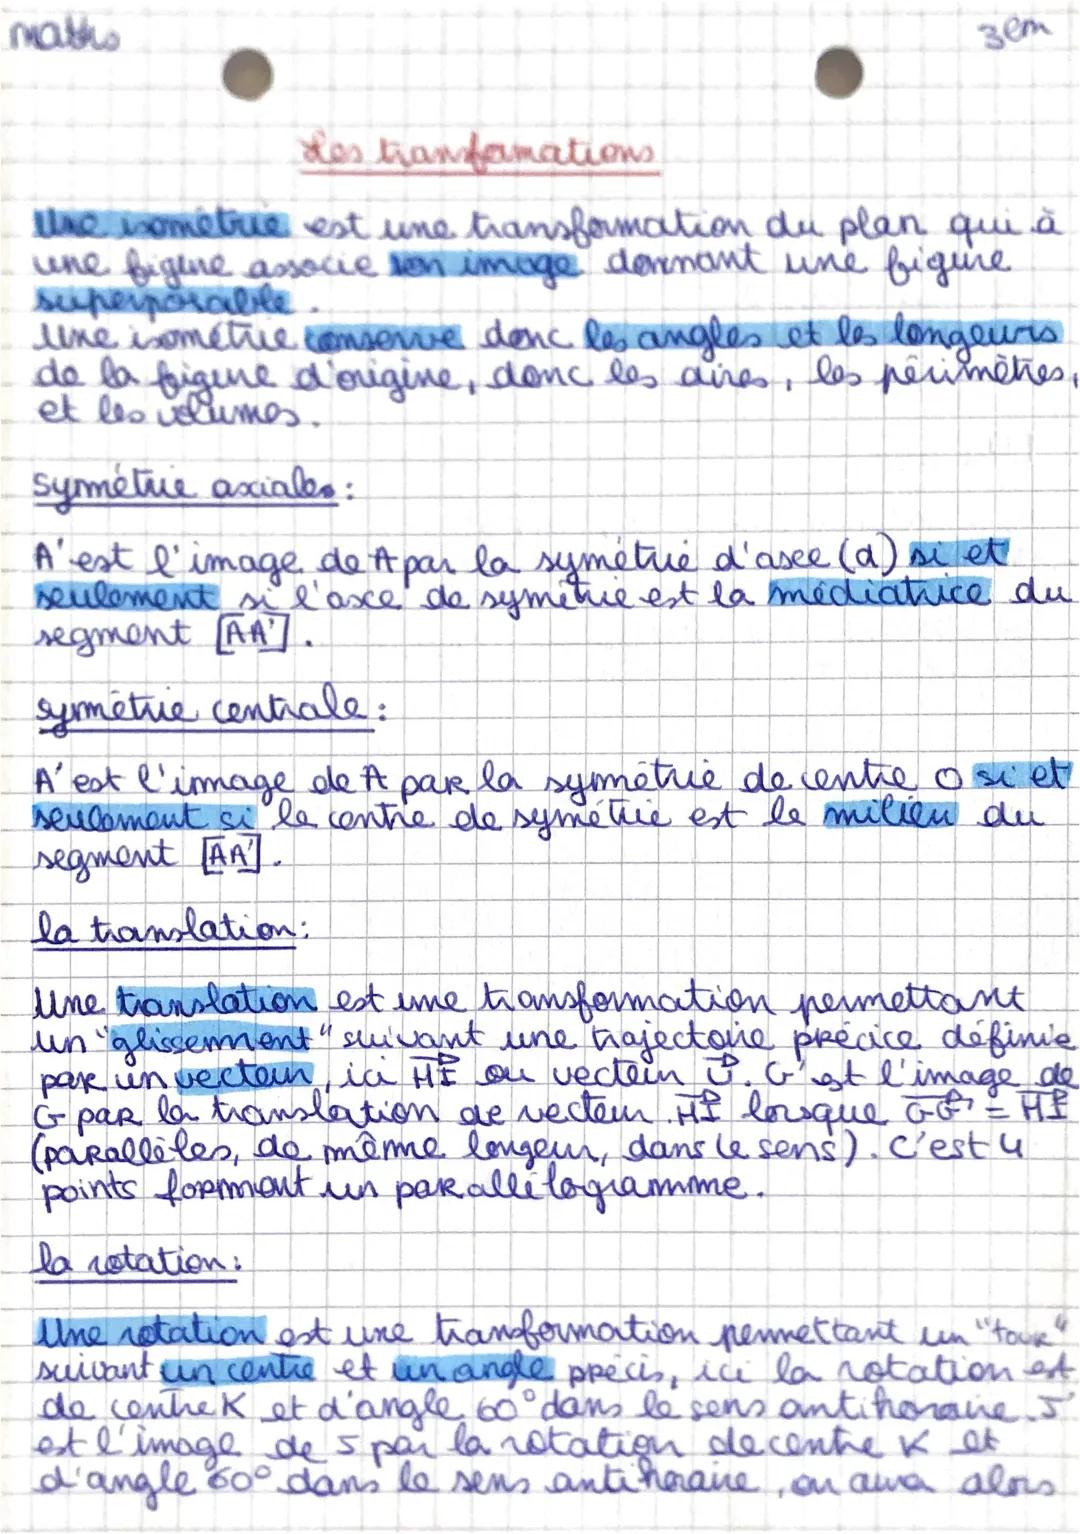 maths
3em
Les transformations
Une isométrie est une transformation du plan qui à
une figure associe son image donnant une figure
superposable.
Une isométrie conserve donc les angles et les longeurs
de la figure d'origine, donc les aires, les périmètres,
et les volumes.
symétrie axiales :
A' est l'image de A par la symétrie d'axe (d) si et
seulement si l'axe de symétrie est la médiatrice du
segment [AA'].
symétrie centrale :
A' est l'image de A par la symétrie de centre O si et
seulement si le centre de symétrie est le milieu du
segment [AA'].
la translation :
Une translation est une transformation permettant
un "glissement" suivant une trajectoire précice définie
par un vecteur, ici HI ou vecteur U. G' est l'image de
G par la translation de vecteur HI lorsque GG' = HI
(parallèles, de même longeur, dans le sens). C'est 4
points forment un parallélogramme.
la rotation :
Une rotation est une transformation permettant un "tour"
suivant un centre et un angle précis, ici la rotation est
de centre K et d'angle 60° dans le sens antihoraire. J'
est l'image de J par la rotation de centre K et
d'angle 60° dans le sens antihoraire, on aura alors